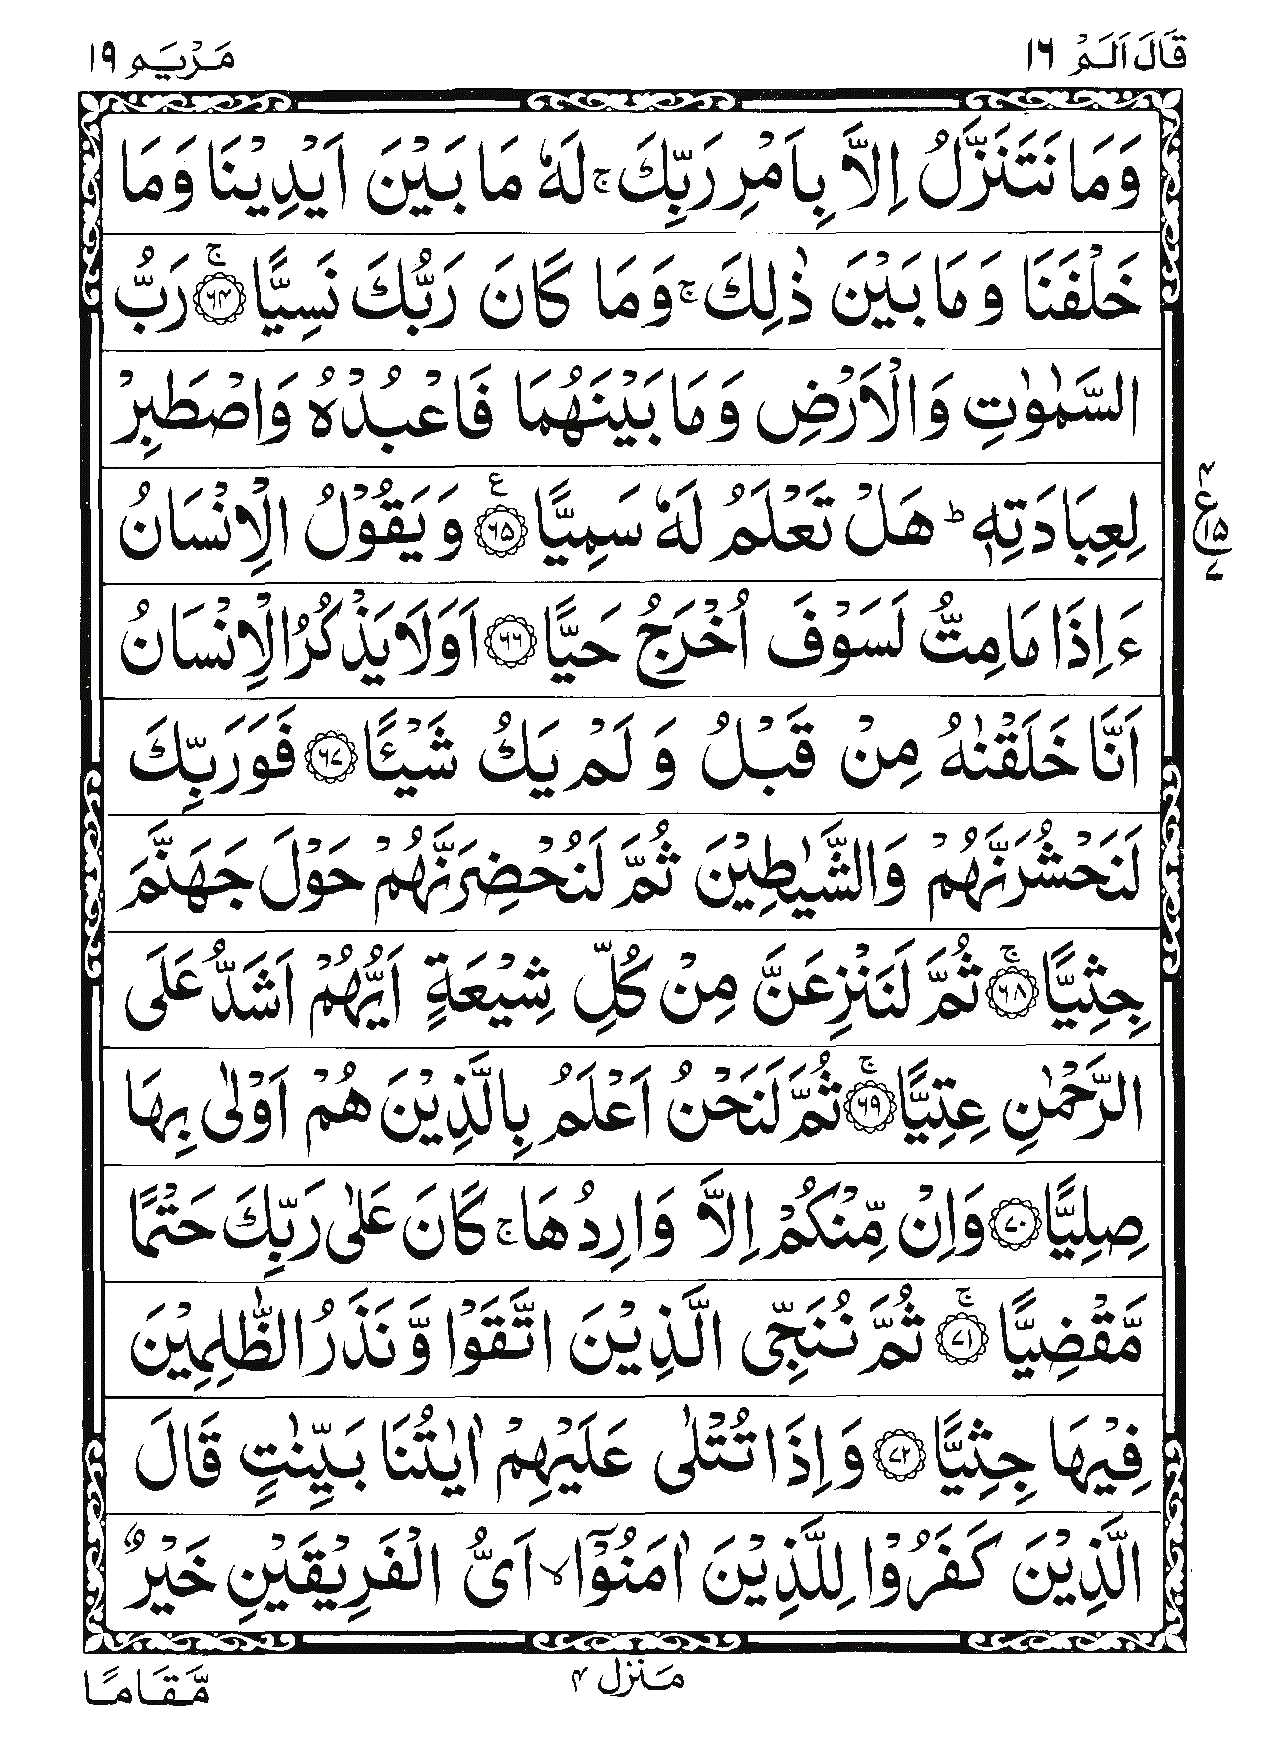 قَالَ اَلَمْ ١٦
مَرْيَم ١٩
وَمَا نَتَنَزَّلُ اِلَّا بِاَمْرِ رَبِّكَ ۚ لَهٗ مَا بَيْنَ اَيْدِيْنَا وَمَا
خَلْفَنَا وَمَا بَيْنَ ذٰلِكَ ۚ وَمَا كَانَ رَبُّكَ نَسِيًّا ۚ ﴿٦٤﴾ رَبُّ
السَّمٰوٰتِ وَالْاَرْضِ وَمَا بَيْنَهُمَا فَاعْبُدْهُ وَاصْطَبِرْ
لِعِبَادَتِهٖ ؕ هَلْ تَعْلَمُ لَهٗ سَمِيًّا ﴿٦٥﴾ ع وَيَقُوْلُ الْاِنْسَانُ
ع ٤ ١٥ ٧
ءَاِذَا مَا مِتُّ لَسَوْفَ اُخْرَجُ حَيًّا ﴿٦٦﴾ اَوَلَا يَذْكُرُ الْاِنْسَانُ
اَنَّا خَلَقْنٰهُ مِنْ قَبْلُ وَلَمْ يَكُ شَيْـًٔا ﴿٦٧﴾ فَوَرَبِّكَ
لَنَحْشُرَنَّهُمْ وَالشَّيٰطِيْنَ ثُمَّ لَنُحْضِرَنَّهُمْ حَوْلَ جَهَنَّمَ
جِثِيًّا ۚ ﴿٦٨﴾ ثُمَّ لَنَنْزِعَنَّ مِنْ كُلِّ شِيْعَةٍ اَيُّهُمْ اَشَدُّ عَلَى
الرَّحْمٰنِ عِتِيًّا ۚ ﴿٦٩﴾ ثُمَّ لَنَحْنُ اَعْلَمُ بِالَّذِيْنَ هُمْ اَوْلٰى بِهَا
صِلِيًّا ﴿٧٠﴾ وَاِنْ مِّنْكُمْ اِلَّا وَارِدُهَا ۚ كَانَ عَلٰى رَبِّكَ حَتْمًا
مَّقْضِيًّا ۚ ﴿٧١﴾ ثُمَّ نُنَجِّى الَّذِيْنَ اتَّقَوْا وَّنَذَرُ الظّٰلِمِيْنَ
فِيْهَا جِثِيًّا ﴿٧٢﴾ وَاِذَا تُتْلٰى عَلَيْهِمْ اٰيٰتُنَا بَيِّنٰتٍ قَالَ
الَّذِيْنَ كَفَرُوْا لِلَّذِيْنَ اٰمَنُوْٓا ۙ اَىُّ الْفَرِيْقَيْنِ خَيْرٌ
منزل ۴
مَّقَامًا